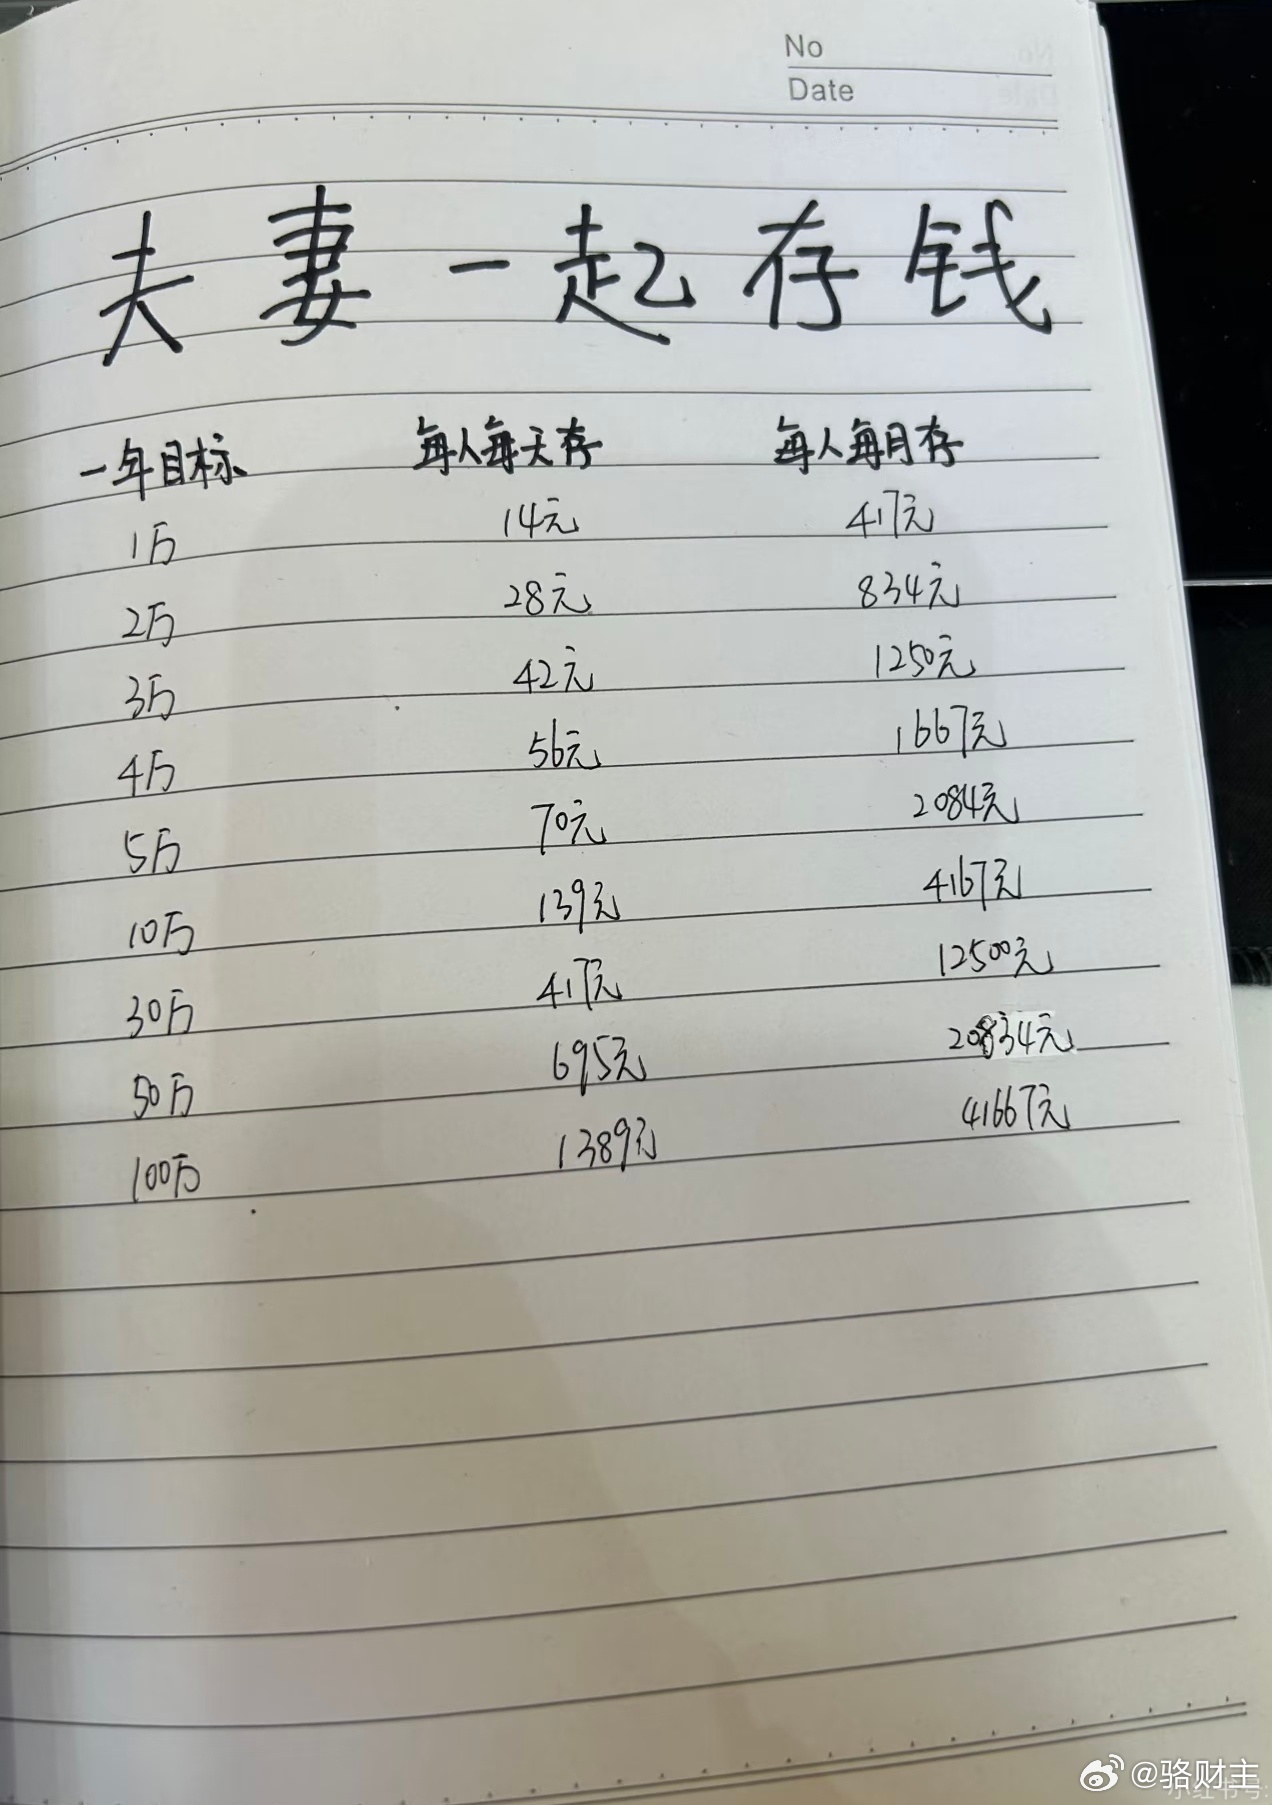 No
Date
夫妻一起存钱
一年目标 每人每天存 每人每月存
1万 14元 417元
2万 28元 834元
3万 42元 1250元
4万 56元 1667元
5万 70元 2084元
10万 139元 4167元
30万 417元 12500元
50万 695元 20834元
100万 1389元 41667元
@骆财主
小红书号: